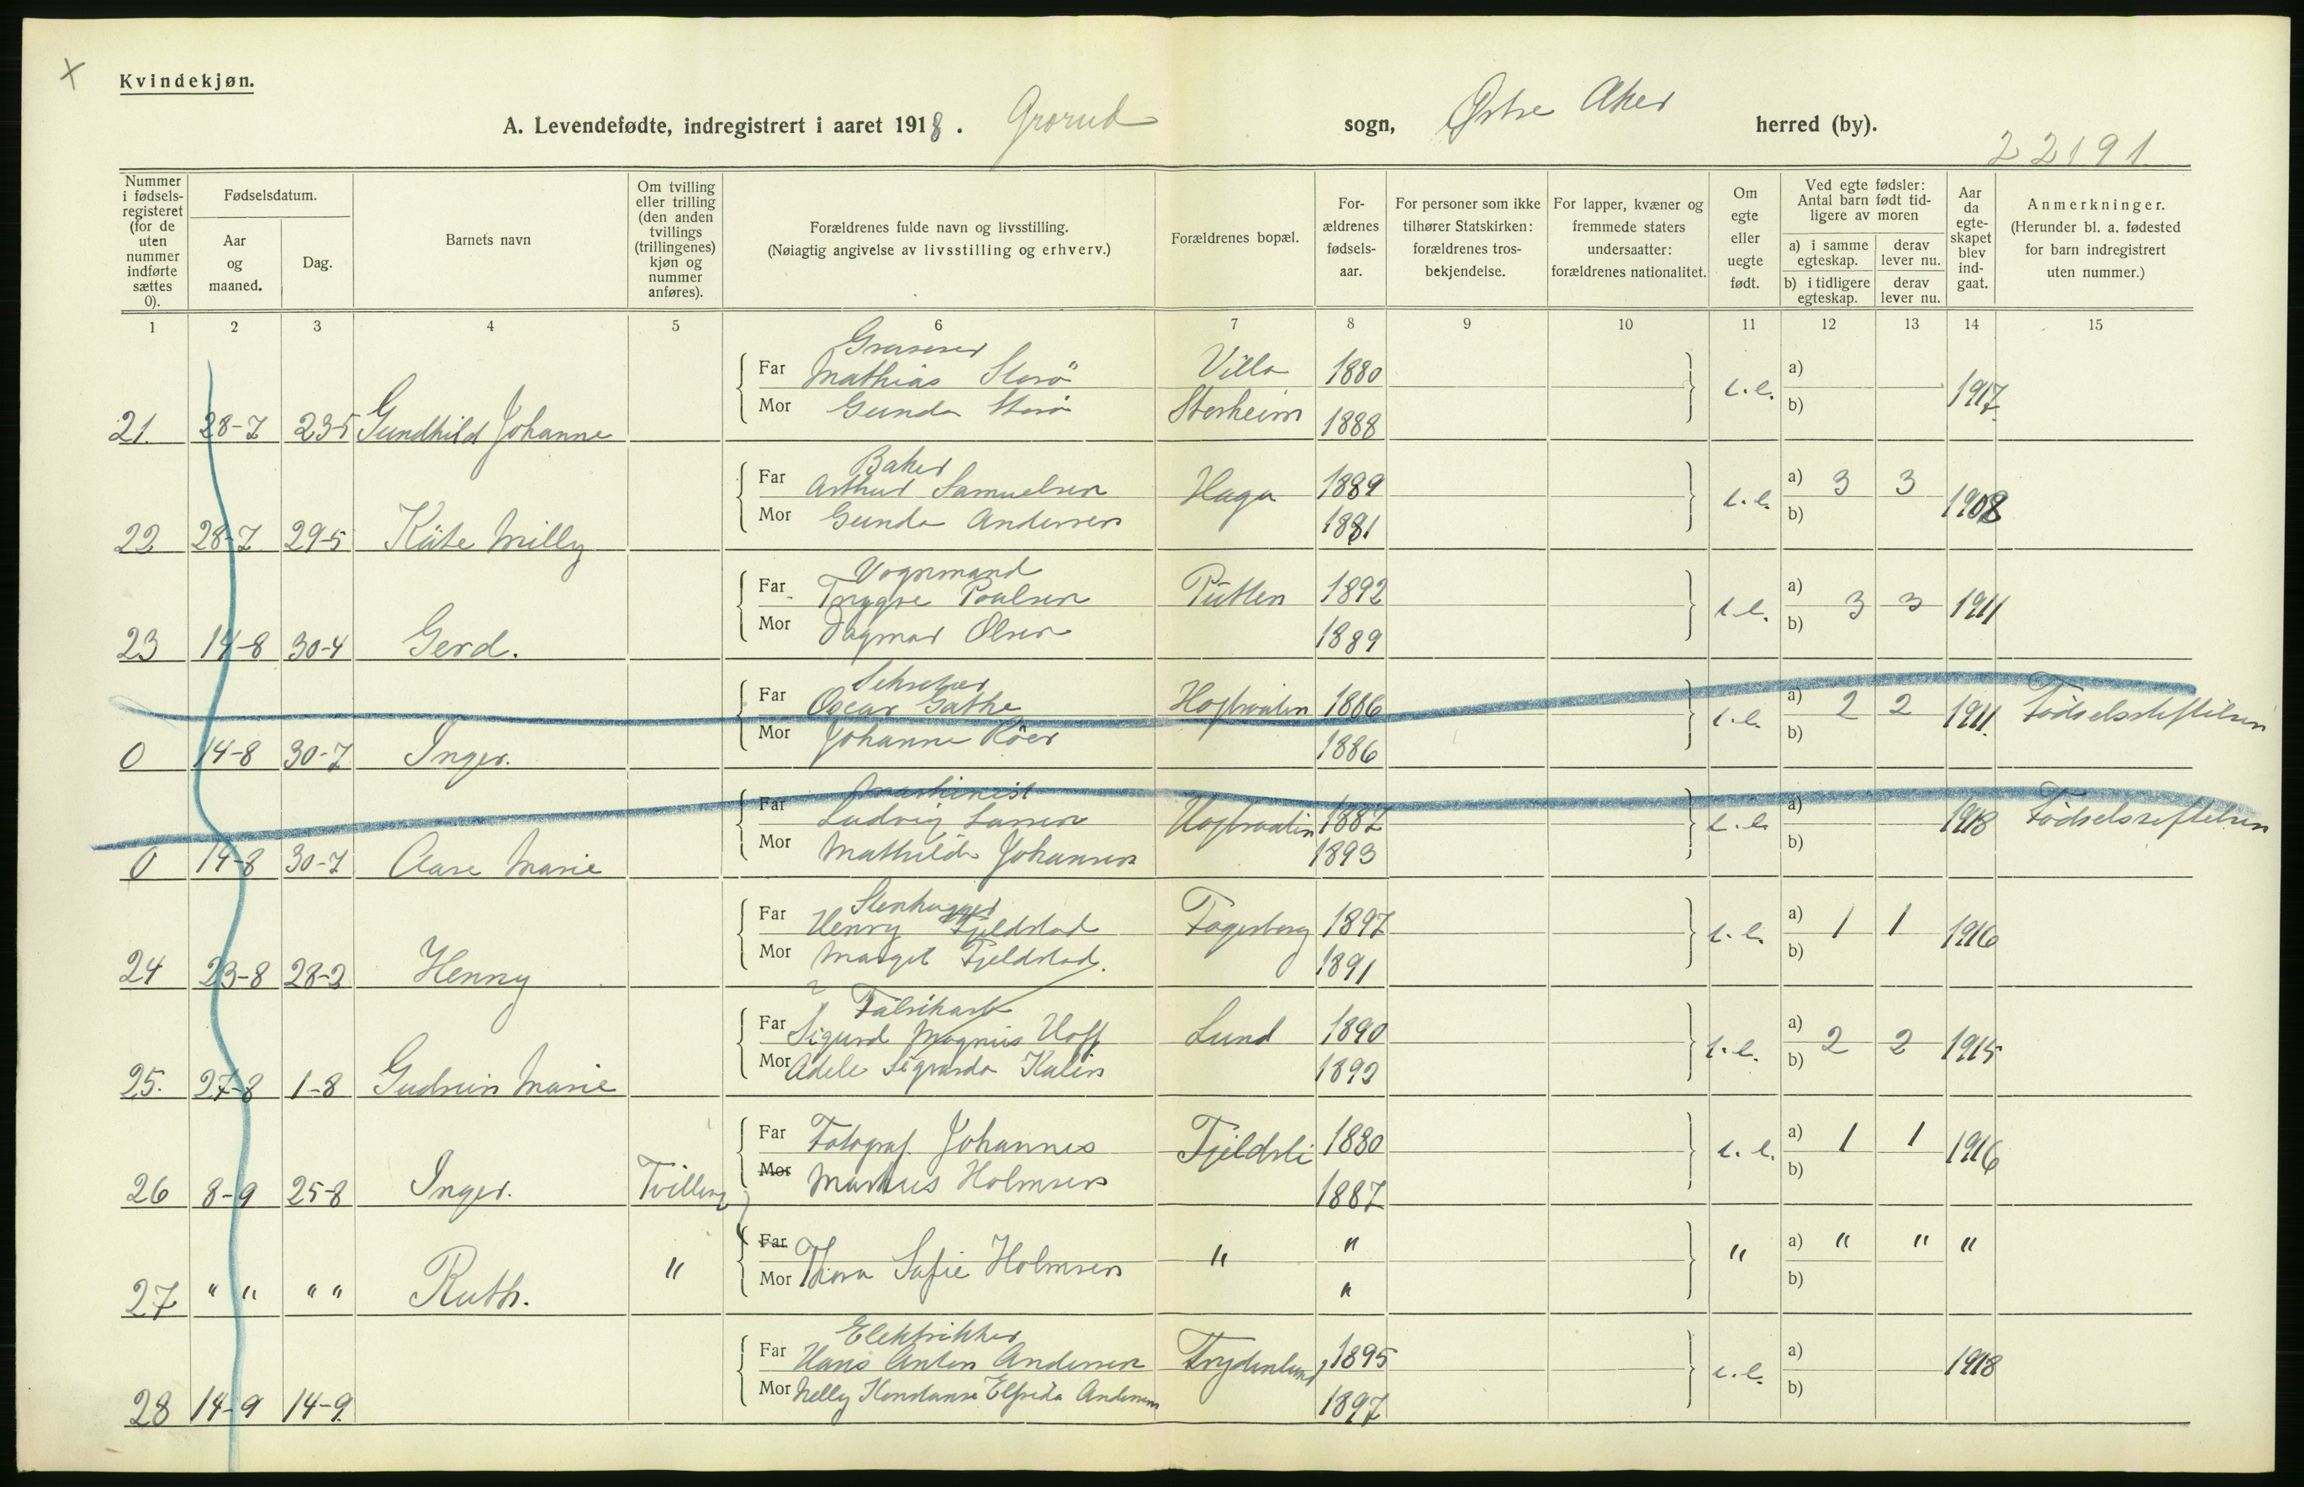 X
Kvindekjøn.
A. Levendefødte, indregistrert i aaret 1918. Grorud sogn, Østre Aker herred (by).
22191
Nummer i fødsels-registeret (for de uten nummer indførte sættes 0).
Fødselsdatum.
Aar og maaned.
Dag.
Barnets navn
Om tvilling eller trilling (den anden tvillings (trillingenes) kjøn og nummer anføres).
Forældrenes fulde navn og livsstilling.
(Nøiagtig angivelse av livsstilling og erhverv.)
Forældrenes bopæl.
For-ældrenes fødsels-aar.
For personer som ikke tilhører Statskirken: forældrenes tros-bekjendelse.
For lapper, kvæner og fremmede staters undersaatter: forældrenes nationalitet.
Om egte eller uegte født.
Ved egte fødsler: Antal barn født tid-ligere av moren
a) i samme egteskap.
derav lever nu.
b) i tidligere egteskap.
derav lever nu.
Aar da egte-skapet blev ind-gaat.
Anmerkninger.
(Herunder bl. a. fødested for barn indregistrert uten nummer.)
1 2 3 4 5 6 7 8 9 10 11 12 13 14 15
Far Mathias Storö Villa 1880 a)
Mor Gunda Storö Storheim 1888 b) 1917
21. 28-7 23-5 Gundhild Johanne
Baker
Far Arthur Samuelsen Haga 1889 a) 3 3
Mor Gunda Andersen 1881 b) 1908
22 28-7 29-5 Käte Milly
Vognmand
Far Trygve Poulsen Putten 1892 a) 3 3 1911
Mor Dagmar Olsen 1889 b)
23 14-8 30-4 Gerd.
Sekretær
Far Oscar Gathe 1886 a) 2 2 1911. Fødselsstiftelsen
Mor Johanne Röer 1886 b)
0 14-8 30-7 Inger.
Maskinist
Far Ludvig Larsen 1887 a) 1918 Fødselsstiftelsen
Mor Mathilde Johansen 1893 b)
0 14-8 30-7 Aase Marie
Stenhugger
Far Henry Fjeldstad Fagerborg 1897 a) 1 1 1916
Mor Margit Fjeldstad. 1891 b)
24 23-8 28-2 Henny
Fabrikarb
Far Sigurd Magnus Hoff Lund 1890 a) 2 2 1915
Mor Adele Sigvarda 1892 b)
25. 27-8 1-8 Gudrun Marie
Far Fotograf. Johannes Fjeldsli 1880 a) 1 1 1916
Mor Markus Holmsen 1887 b)
26 8-9 25-8 Inger. Tvilling
Far " " " a) " " "
Mor Thora Sofie Holmsen " b)
27 " " " " Ruth. "
Elektriker
Far Hans Anton Andersen Frydenlund, 1895 a) 1918
Mor Nelly Konstanse Elfrida Andersen 1897 b)
28 14-9 14-9.